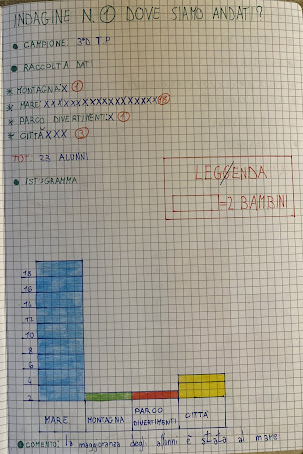 INDAGINE N. 1 DOVE SIAMO ANDATI?
• CAMPIONE: 3ªD T.P
• RACCOLTA DATI
* MONTAGNA: X 1
* MARE: XXXXXXXXXXXXXXXXXX 18
* PARCO DIVERTIMENTI: X 1
* CITTÀ XXX 3
TOT. 23 ALUNNI
LEGGENDA
=2 BAMBINI
• ISTOGRAMMA
18
16
14
12
10
8
6
4
2
MARE MONTAGNA PARCO DIVERTIMENTI CITTÀ
COMENTO: la maggioranza degli alunni è stata al mare